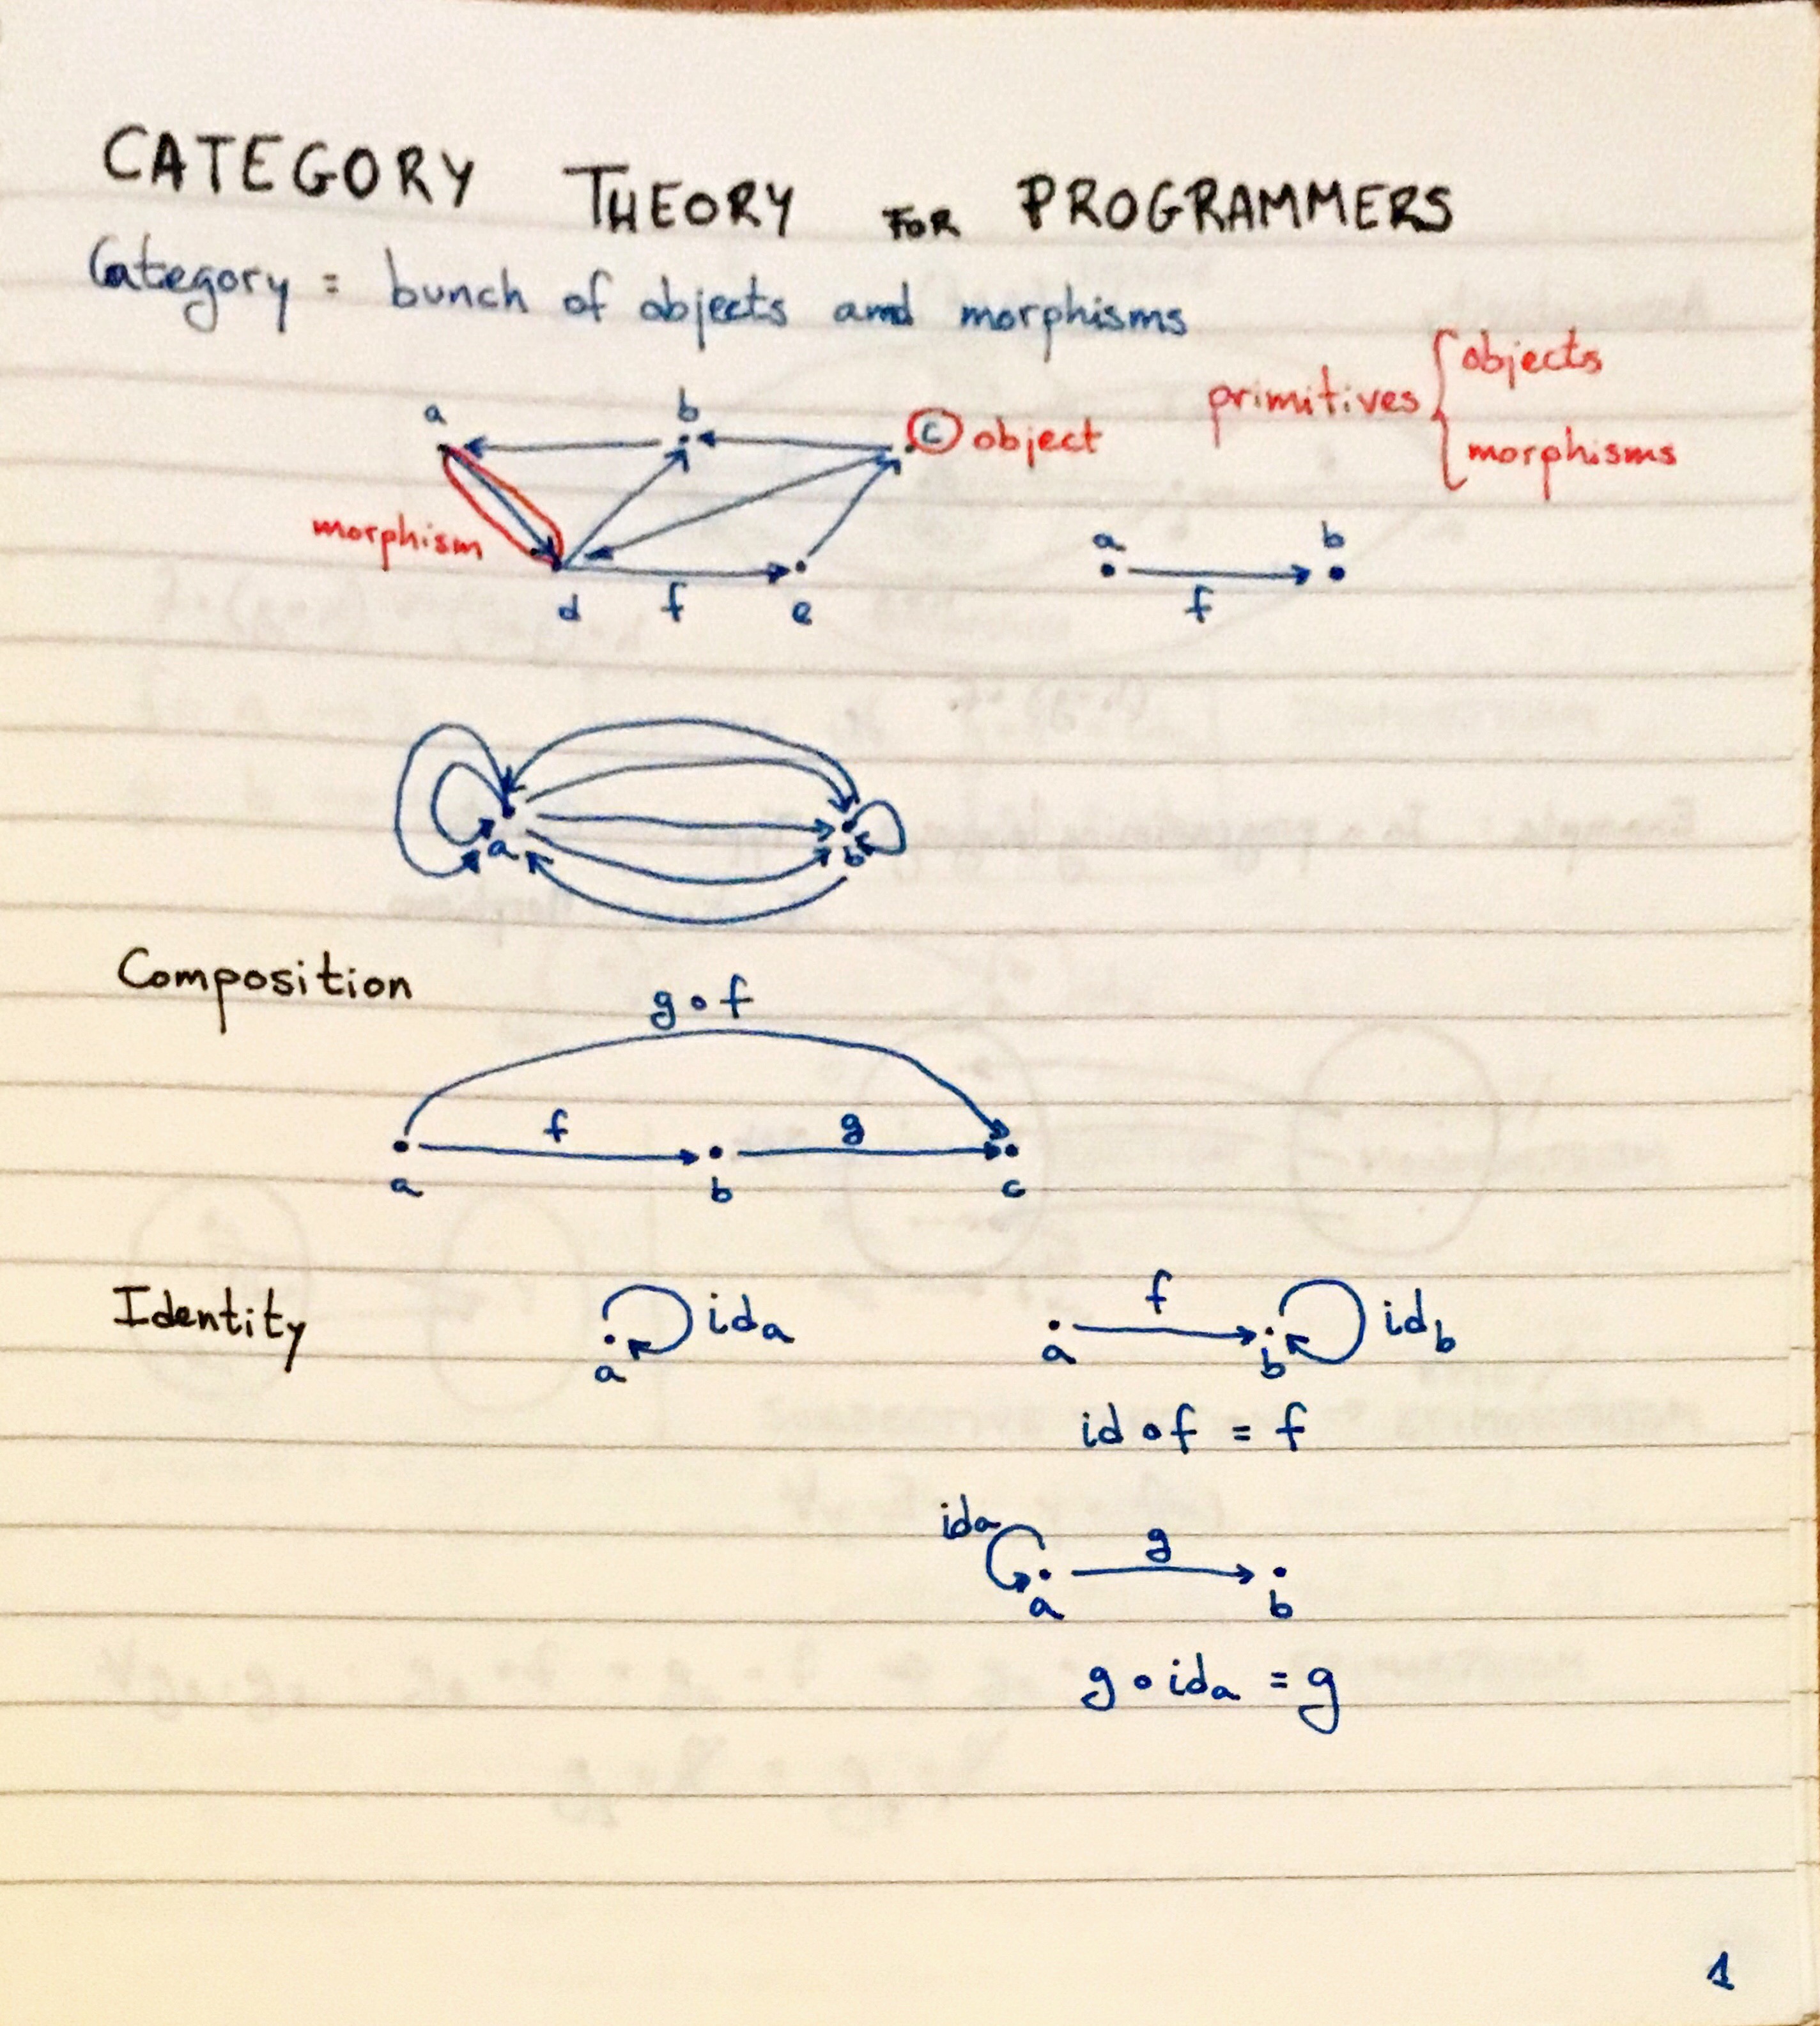 CATEGORY THEORY FOR PROGRAMMERS
Category = bunch of objects and morphisms
primitives { objects
morphisms
a b c object
morphism
d f e
a b
f
a b
Composition
g∘f
f g
a b c
Identity
id_a
a
f
a b id_b
id∘f = f
id_a
g
a b
g∘id_a = g
1